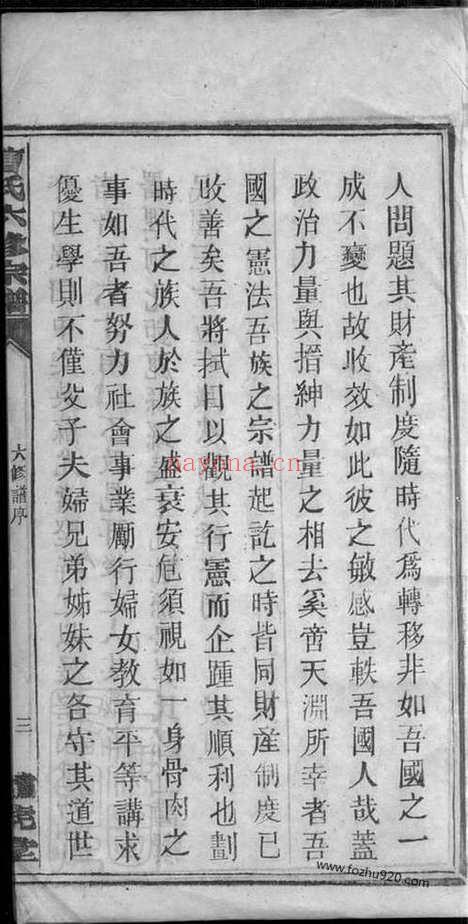 人問題其財產制度隨時代爲轉移非如吾國之一
成不變也故收效如此彼之敏感豈軼吾國人哉蓋
政治力量與搢紳力量之相去奚啻天淵所幸者吾
國之憲法吾族之宗譜起訖之時皆同財産制度已
收善矣吾將拭目以觀其行憲而企踵其順利也劃
時代之族人於族之盛衰安危須視如一身骨肉之
事如吾者努力社會事業勵行婦女教育平等講求
優生學則不僅父子夫婦兄弟姊妹之各守其道世
氏六修宗譜
六修譜序
三
nayona.cn
www.fozhu920.com